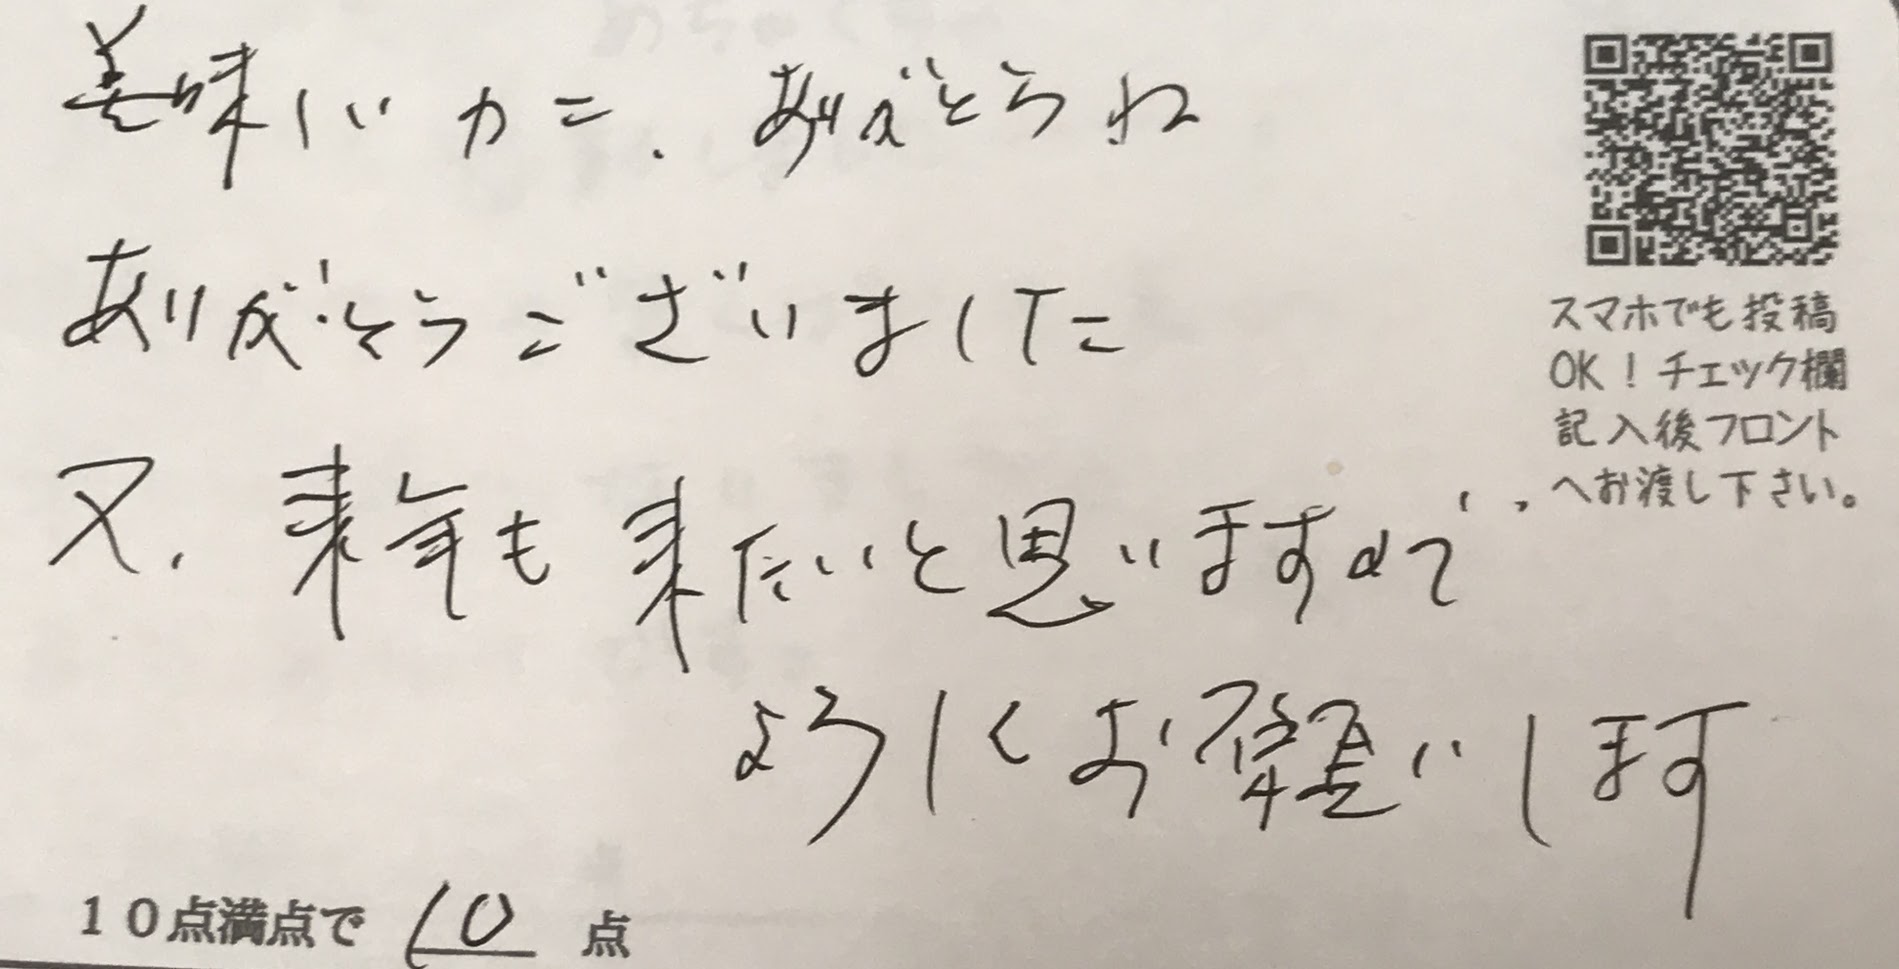 美味しいカニ、ありがとうね
ありがとうございました
又、来年も来たいと思いますので、
よろしくお願いします
１０点満点で 10 点
スマホでも投稿
OK！チェック欄
記入後フロント
へお渡し下さい。